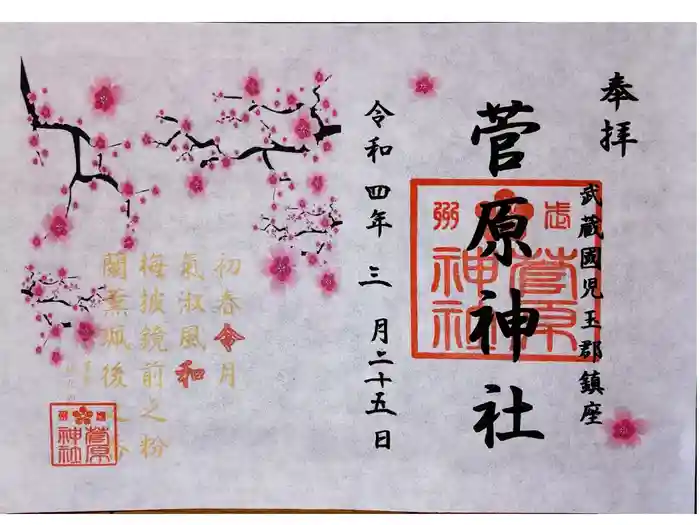 奉拝
武蔵國児玉郡鎮座
菅原神社
令和四年三月二十五日
初春令月
氣淑風和
梅披鏡前之粉
蘭薫珮後之香
武州
菅原
神社
菅原
神社